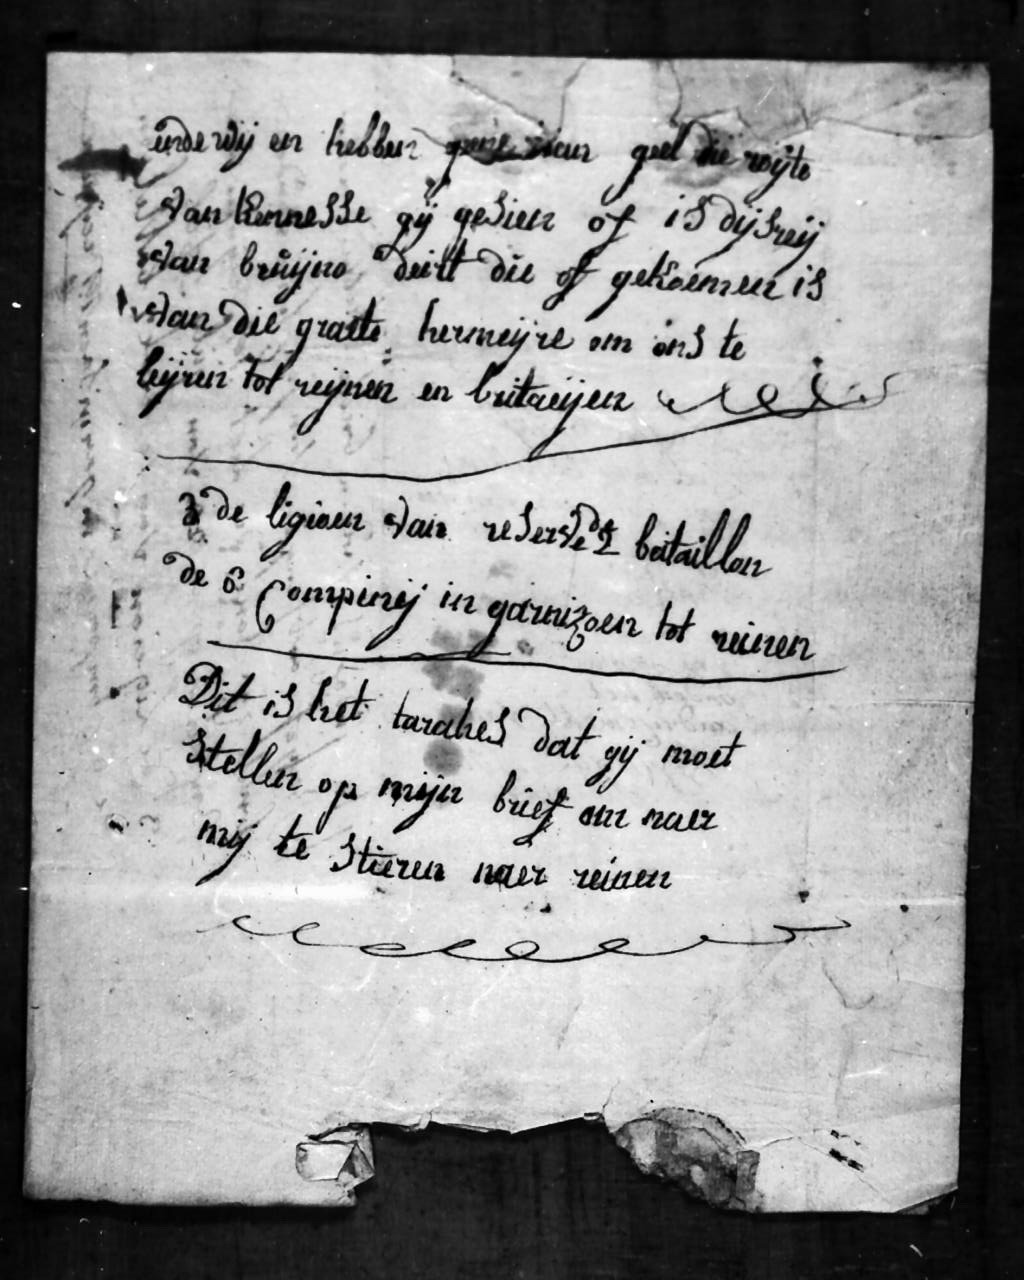 ende wij en hebben gene man geel die wijte
van kennesse gij gesien of is dijsreij
van bruijno deirt die of gekoemen is
van die graete hermeijre om ons te
leijren tot reijnen en britaeijen
3 de ligioen van reserve de 2 bataillon
de 6 Compinij in garnizoen tot reinen
Dit is het tarahes dat gij moet
stellen op mijn brief om naer
mij te stieren naer reinen